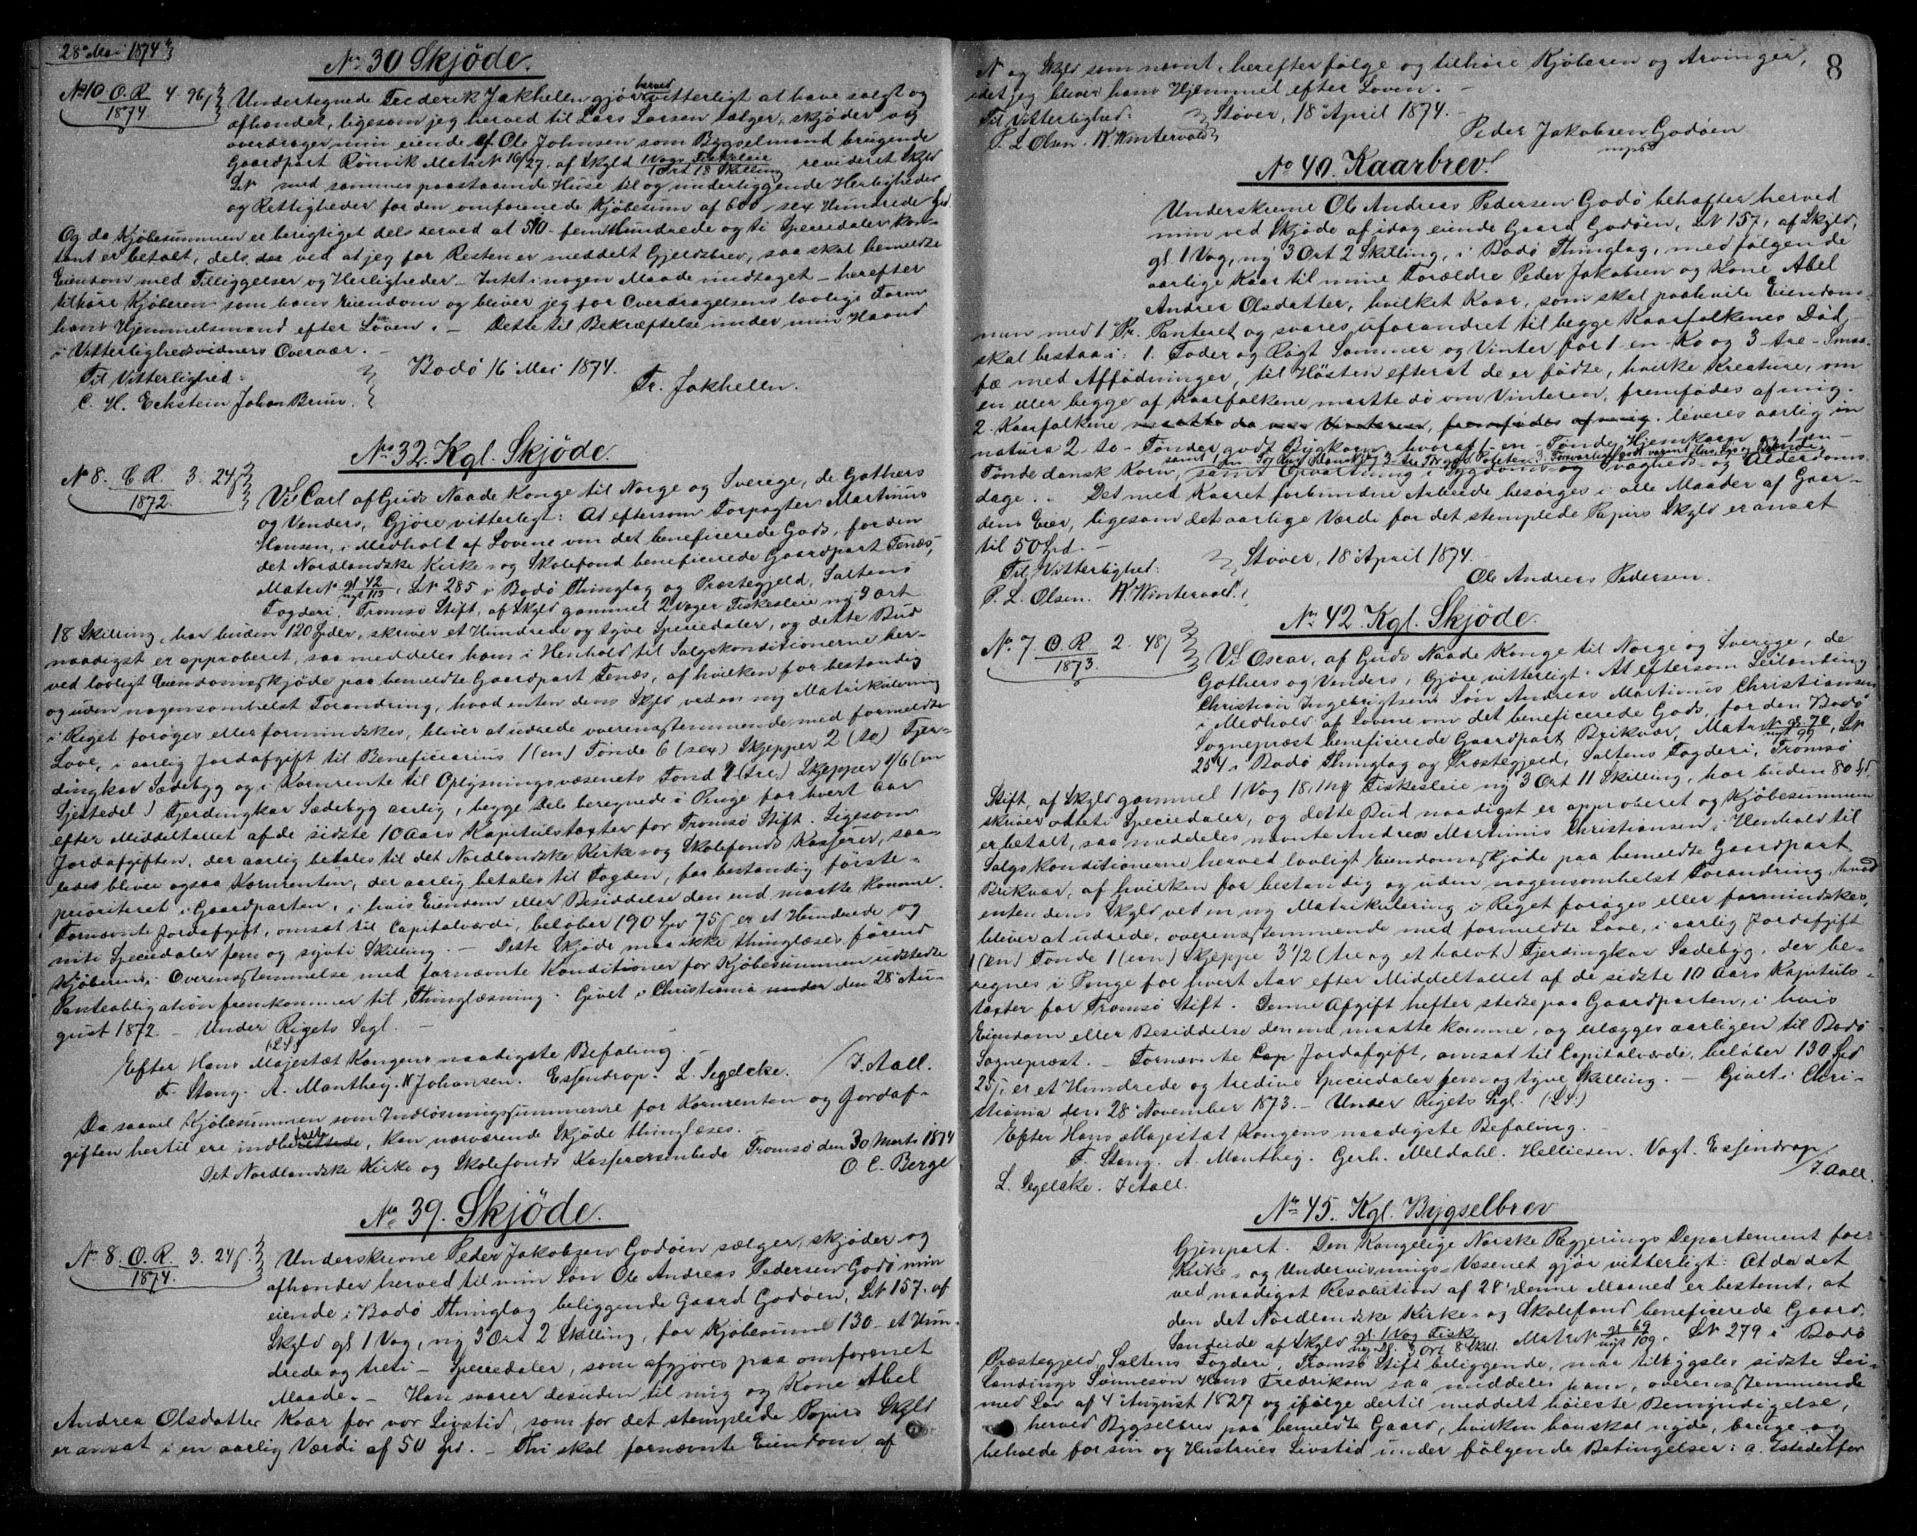 28de Mai 1874
No 30 Skjøde.
No 10 O.R. 4 96 ß
1874
Undertegnede Frederik Jakhellen gjør herved vitterligt at have solgt og
afhændet, ligesom jeg herved til Lars Larsen sælger, skjøder og
overdrager min eiende af Ole Johnsen som Bygselmand brugende
Gaardpart Rønvik Matr No 16/27. af Skyld 1 Vogs Fiskeleie revideret Skyld
1 Ort 18 Skilling
L No med sammes paastaaende Huse til og underliggende Herligheder
og Rettigheder for den omforenede Kjøbesum af 600, sex Hundrede Spd.
Og da Kjøbesummen er berigtiget dels derved at 510 - femhundrede og ti Speciedaler kon-
tant er betalt, dels ved at jeg for Resten er meddelt Gjeldsbrev, saa skal bemeldte
Eiendom med Tilliggelser og Herligheder - Intet i nogen Maade undtaget - herefter
tilhøre Kjøberen som hans Eiendom og bliver jeg for Overdragelsens lovlige Form
hans Hjemmelsmand efter Loven. - Dette til Bekræftelse under min Haand
i Vitterlighedsvidners Overvær. -
Bodø 16 Mai 1874.
Til Vitterlighed:
Fr. Jakhellen.
C. H. Eckstein Johan Bruun.
No 32. Kgl. Skjøde.
No 8. C.R. 3. 24 ß
1872.
Vi Carl af Guds Naade Konge til Norge og Sverige, de Gothers
og Venders, Gjøre vitterligt: At eftersom Forpagter Martinus
Hansen, i Medhold af Lovene om det beneficerede Gods, for den
det Nordlandske Kirke- og Skolefond beneficerede Gaardpart Fenæs,
Matr No gl 42 L No 285 i Bodø Thinglag og Præstegjeld, Saltens
nyt 113
Fogderi, Tromsø Stift, af Skyld gammel 2 Voger Fiskesleie ny 3 Ort
18 Skilling, har buden 120 Spdlr, skriver et Hundrede og tyve Speciedaler, og dette Bud
naadigst er approberet, saa meddeles ham i Henhold til Salgskonditionerne her-
ved lovligt Eiendomsskjøde paa bemeldte Gaardpart Fenæs, af hvilken for bestandig
og uden nogensomhelst Forandring, hvad enten dens Skyld ved en ny Matrikulering
i Riget forøges eller formindskes, bliver at udrede overensstemmende med formeldte
Love, i aarlig Jordafgift til Beneficiarius 1 (en) Tønde 6 (sex) Skjepper 2 (to) Fjer-
dingkar Sædebyg og i Kornrente til Oplysningsvæsenets Fond 3 (tre) Skjepper 1/6 (en
Sjettedel) Fjerdingkar Sædebyg aarlig, begge Dele beregnede i Penge for hvert Aar
efter Middeltallet af de sidste 10 Aars Kapitulstaxter for Tromsø Stift. Ligesom
Jordafgiften, der aarlig betales til det Nordlandske Kirke- og Skolefonds Kasserer, saa-
ledes bliver ogsaa Kornrenten, der aarlig betales til Fogden, for bestandig første-
prioriteret i Gaardparten, i hvis Eiendom eller Besiddelse den end maatte komme.
Fornævnte Jordafgift, omsat til Capitalværdi, beløber 190 Spd 75 ß er et Hundrede og
niti Speciedaler fem og sytti Skilling. - Dette Skjøde maa ikke thinglæses, førend
Kjøberens, i Overensstemmelse med fornævnte Konditioner for Kjøbesummen udstedte
Panteobligation fremkommer til Thinglæsning. Givet i Christiania under den 28 Au-
gust 1872 - Under Rigets Segl. -
(L.S.)
Efter Hans Majestæt Kongens naadigste Befaling. -
F. Stang. A. Manthey. N Johansen. Essendrop. L. Segelcke. / J. Aall.
Da saavel Kjøbesummen som Indløsningssummerne for Kornrenten og Jordaf-
giften hertil ere indbetalte, kan nærværende Skjøde thinglæses.
Det Nordlandske Kirke og Skolefonds Kassererombede Tromsø den 30 Marts 1874
O. E. Berge
No 39. Skjøde.
No 8. O.R. 3. 24 ß.
1874.
Underskrevne Peder Jakobsen Godøen sælger, skjøder og
afhænder herved til min Søn Ole Andreas Pedersen Godø min
eiende i Bodø Thinglag beliggende Gaard Godøen, L No 157. af
Skyld gl 1 Vog, ny 3 Ort 2 Skilling, for Kjøbesum 130 - et Hun-
drede og treti - Speciedaler, som afgjøres paa omforenet
Maade. - Han svarer desuden til mig og Kone Abel
Andrea Olsdatter Kaar for vor Livstid, som for det stemplede Papirs Skyld
er ansat i en aarlig Værdi af 50 Spd. - Thi skal fornævnte Eiendom af
8
N og Skyld som nævnt, herefter følge og tilhøre Kjøberen og Arvinger,
idet jeg bliver hans Hjemmel efter Loven. -
Til Vitterlighed: Støver, 18 April 1874. -
P. L. Olsen. W. Wintervold
Peder Jakobsen Godøen
mpS
No 40. Kaarbrev.
Underskrevne Ole Andreas Pedersen Godø behefter herved
min ved Skjøde af idag eiende Gaard Godøen, L No 157, af Skyld,
gl 1 Vog, ny 3 Ort 2 Skilling, i Bodø Thinglag, med følgende
aarlige Kaar til mine Forældre Peder Jakobsen og Kone Abel
Andrea Olsdatter, hvilket Kaar, som skal paahvile Eiendom-
men med 1 Pr. Panteret og svares uforandret til begge Kaarfolkenes Død, -
skal bestaa i: 1. Foder og Røgt Sommer og Vinter for 1 en - Ko og 3 - tre - Smaa-
fæ med Affødninger, til Høsten efterat de er fødte, hvilke Kreature, om
en eller begge af Kaarfolkene maatte dø om Vinteren, fremfødes af mig.
2. Kaarfolkene maatte dø om Vinteren, fremfødes af mig. leveres aarlig in
natura 2 - to - Tønder godt Bygkorn, hvoraf 1 - en - Tønde Hjemkorn og 1 - en -
Tønde dansk Korn, samt Opvartning i Sygdoms- og Svagheds- og Alderdoms-
dage. . Det med Kaaret forbundne Arbeide besørges i alle Maader af Gaar-
dens Eier, ligesom det aarlige Værdi for det stemplede Papirs Skyld er ansat
til 50 Spd. -
Støver, 18 April 1874.
Til Vitterlighed:
Ole Andreas Pedersen.
P. L. Olsen. W. Wintervold.
No 42. Kgl. Skjøde.
No 7 O.R. 2 48 ß
1873.
Vi Oscar, af Guds Naade Konge til Norge og Sverige, de
Gothers og Venders, Gjøre vitterligt: At eftersom Leilænding
Christian Ingebrigtsens Søn Andreas Martinus Christiansen
i Medhold af Lovene om det beneficerede Gods, for den Bodø
Sognepræst beneficerede Gaardpart Brikvær, Matr No gl 70, L No
nyt 99
254 i Bodø Thinglag og Præstegjeld, Saltens Fogderi, Tromsø
Stift, af Skyld gammel 1 Vog 18 Mrk Fiskesleie ny 3 Ort 11 Skilling, har buden 80 Spd,
skriver otteti Speciedaler, og dette Bud naadigst er approberet og Kjøbesummen
er betalt, saa meddeles nævnte Andreas Martinus Christiansen i Henhold til
Salgskonditionerne herved lovligt Eiendomsskjøde paa bemeldte Gaardpart
Brikvær, af hvilken for bestandig og uden nogensomhelst Forandring, hvad
enten dens Skyld ved en ny Matrikulering i Riget forøges eller formindskes,
bliver at udrede, overensstemmende med formeldte Love, i aarlig Jordafgift
1 (en) Tønde 1 (een) Skjeppe 3 1/2 (tre og et halvt) Fjerdingkar Sædebyg, der be-
regnes i Penge for hvert Aar efter Middeltallet af de sidste 10 Aars Kapituls-
taxter for Tromsø Stift. Denne Afgift hefter stedse paa Gaardparten, i hvis
Eiendom eller Besiddelse den end maatte komme, og erlægges aarligen til Bodø
Sognepræst. - Fornævnte Cap Jordafgift, omsat til Capitalværde, beløber 130 Spd
25 ß, er et Hundrede og tredive Speciedaler fem og tyve Skilling. - Givet i Chri-
stiania den 28 November 1873. - Under Rigets Segl. (L.S.)
Efter Hans Majestæt Kongens naadigste Befaling. -
F. Stang. A. Manthey. Gerh. Meldahl. Helliesen. Vogt. Essendrop
L. Segelcke. J. Aall. / J. Aall.
No 45. Kgl. Bygselbrev
Gjenpart. Den Kongelige Norske Regjerings Departement for
Kirke- og Undervisnings-Væsenet gjør vitterligt: At da det
ved naadigst Resolution af 24 denne Maaned er bestemt, at
den det Nordlandske Kirke- og Skolefond beneficerede Gaard
Sandeide af Skyld gl. 1 Vog Fisk Matr No gl 69 L No 279 i Bodø
ny Dl. 3 Ort 8 Skil. nyt 109.
Præstegjeld, Saltens Fogderi, Tromsø Stift beliggende, maa tilbygsles sidste Lei-
lændings Sønnesøn Hans Fredriksen saa meddeles ham, overensstemmende
med Lov af 4 August 1827 og ifølge dertil meddelt høieste Bemyndigelse,
herved Bygselbrev paa bemeldte Gaard, hvilken han skal nyde, bruge og
beholde for sin og Hustrues Livstid under følgende Betingelser: a. Istedetfor